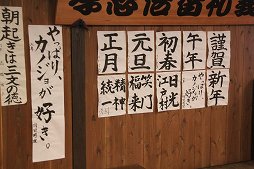 謹賀新年
午年
やっぱり、
カノジョが
好き。
初春
日光
江戸村
元旦
笑門
福来
正月
精神
統一
やっぱり、
カノジョが
好き。
朝起きは三文の徳